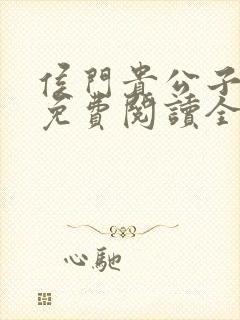 侯門貴公子
免費閱讀全
心馳